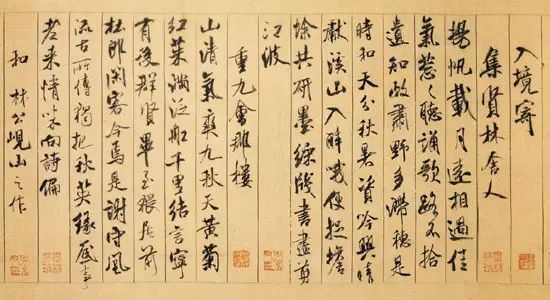 入境寄
集賢林舍人
揚帆載月遠相過佳
氣蔥蔥聽誦歌路不拾
遺知政肅野多滯穗是
時和天分秋暑資吟興晴
獻溪山入醉哦便捉蟾
蜍共研墨綵牋書盡剪
江波
重九會郡樓
山清氣爽九秋天黃菊
紅茱滿泛船千里結言寧
有後群賢畢至猥居前
杜郎閑客今焉是謝守風
流古所傳獨把秋英緣底事
老來情味向詩偏
和林公峴山之作